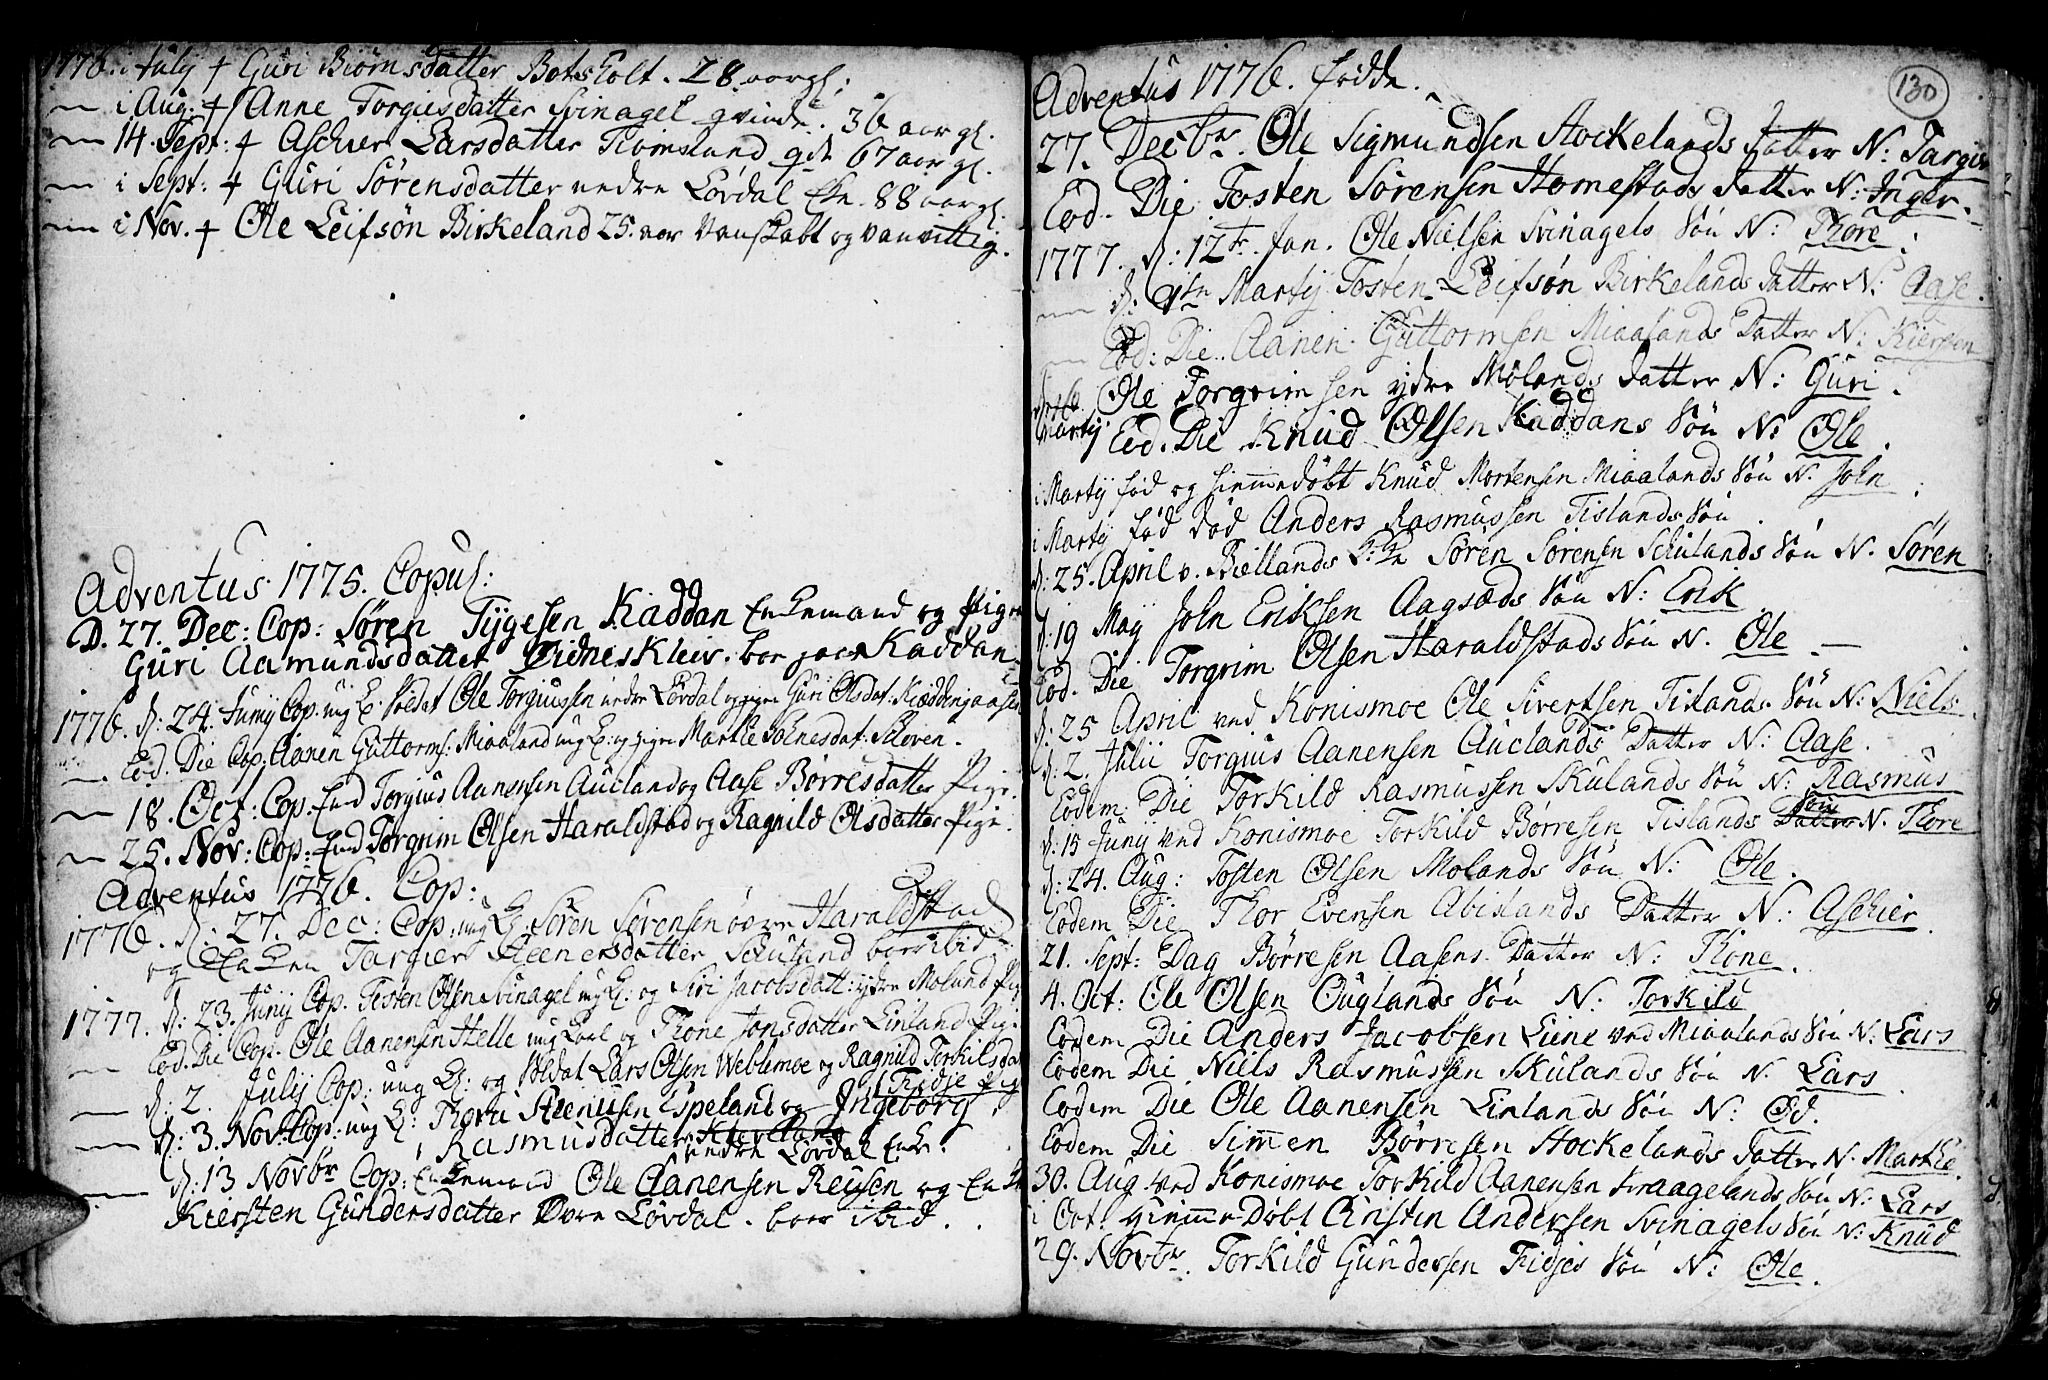 1776. i July + Guri Biørnsdatter Botesholt. 28 aar gl:
— i Aug. + Anne Torgiusdatter Svinagel qvinde. 36 aar gl.
— 14. Sept: + Aschier Larsdatter Tiomsland gdk 67 aar gl.
— i Sept: + Guri Sørensdatter nedre Løvdal Enke. 88 aar gl.
— i Nov. + Ole Leifsøn Birkeland 25. aar vanskabt og vanvittig.
Adventus 1775. Copul:
D. 27. Dec: Cop: Søren Tygesen Kaddan Enkemand og Pigen
Guri Aamundsdatter Eidneskleiv. boer paa Kaddan.
1776. d: 24. Juny Cop. ung K: Soldat Ole Torgiussen nedre Løvdal og pigen Guri Olsdat: Kiøddensaasen
— Eod. Die Cop: Aanen Guttorms: Miaaland ung K: og pigen Marthe Tolnesdat: Skoven.
— 18. Oct: Cop. Enkemd Torgius Aanensen Aucland og Aase Børresdatter Pige.
— 25. Nov: Cop: Enkmd Torgrim Olsen Haraldstad og Ragnild Olsdatter Pige.
Adventus 1776. Cop:
1776. d: 27. Dec: Cop: ung K: Søren Sørensen øvre Haraldstad
og Enken Targier Steenersdatter Schuland boer ibid:
1777. d: 23. Juny Cop. Tosten Olsen Svinagel ung K: og Siri Jacobsdatt: ydre Moland Pig
— Eod. Die Cop. Ole Aanensen Helle ung Karl og Thone Jonsdatter Linland Pige
— d: 2. July Cop: ung K: og Soldat Lars Olsen Weblemoe og Ragnild Torkilsdat
Fridje Pig
— d: 3. Nov: Cop: ung K: Thore Steenersen Espeland og Ingeborg
Rasmusdatter
nedre Løvdal Enke.
— d: 13 Novbr Cop: Enkemand Ole Aanensen Reusen og Enk
Kiersten Gundersdatter Øvre Løvdal. boer ibid.
130
Adventus 1776. fødde.
27. Decbr. Ole Sigmundsen Stockelands Datter N: Targier
Eod. Die Tosten Sørensen Homestads Datter N: Inger.
1777. d: 12te Jan. Ole Nielsen Svinagels Søn N: Thore.
— d: 9de Martij Tosten Leifsøn Birkelands Datter N: Aase.
— Eod: Die. Aanen Guttormsen Miaalands Datter N: Kiersten
d: 16 Martij Ole Torgrimsen ydre Molands Datter N: Guri.
Eod. Die Knud Olsen Kaddans Søn N: Ole.
i Martij fød og hiemmedøbt Knud Mortensen Miaalands Søn N. John.
i Martij fød død Anders Rasmussen Tislands Søn
d: 25. April v. Biellands K: Søren Sørensen Schulands Søn N. Søren
d: 19 May John Eriksen Aagsæds Søn N: Erik
Eod. Die Torgrim Olsen Haraldstads Søn N. Ole —
d: 25 April ved Konismoe Ole Sivertsen Tislands Søn N: Niels.
d: 2. Julii Torgius Aanensen Auclands Datter N: Aase.
Eodem Die Torkild Rasmussen Skulands Søn N: Rasmus
d: 15 Juny ved Konismoe Torkild Børresen Tislands Datter Søn N. Thore
d: 24. Aug: Tosten Olsen Molands Søn N: Ole.
Eodem Die Thor Evensen Abislands Datter N: Aschier
21. Sept: Dag Børresen Aasens Datter N: Thone.
4. Oct: Ole Olsen Ouglands Søn N: Torkild
Eodem Die Anders Jacobsen Liene ved Miaalands Søn N: Lars
Eodem Die Niels Rasmussen Skulands Søn N. Lars
Eodem Die Ole Aanensen Linlands Søn N: Od.
Eodem Die Simen Børresen Stockelands Datter N. Marthe.
30. Aug ved Konismoe Torkild Aanensen Kraagelands Søn N: Lars
i Oct: hiemme Døbt Christen Andersen Svinagels Søn N: Knud
29. Novbr. Torkild Gundersen Fridjes Søn N: Ole.